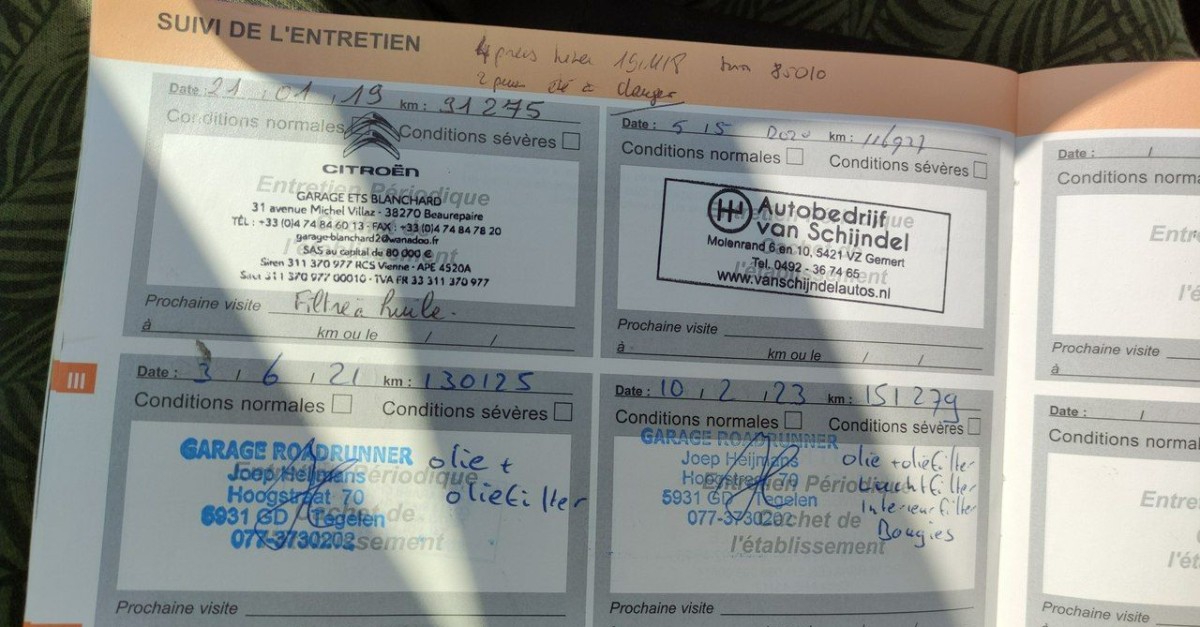 SUIVI DE L'ENTRETIEN
19/11/18 85010
2 à changer
Date : 21 / 01 / 19 km : 91275
Conditions normales Conditions sévères
CITROËN
Entretien Périodique
GARAGE ETS BLANCHARD
31 avenue Michel Villaz - 38270 Beaurepaire
TÉL : +33 (0)4 74 84 60 13 - FAX : +33 (0)4 74 84 78 20
garage-blanchard2@wanadoo.fr
SAS au capital de 80 000 €
Siren 311 370 977 RCS Vienne - APE 4520A
Siret 311 370 977 00010 - TVA FR 33 311 370 977
Prochaine visite Filtre à huile.
à km ou le / /
Date : 5 / 5 2020 km : 116927
Conditions normales Conditions sévères
Autobedrijf
van Schijndel
Molenrand 6 en 10, 5421 VZ Gemert
Tel. 0492 - 36 74 65
www.vanschijndelautos.nl
l'établissement
Prochaine visite
à km ou le / /
III
Date : 3 / 6 / 21 km : 130125
Conditions normales Conditions sévères
GARAGE ROADRUNNER olie +
Joep Heijmans
Hoogstraat 70 oliefilter
5931 GD Tegelen
077-3730202
Prochaine visite
Date : 10 / 2 / 23 km : 151279
Conditions normales Conditions sévères
GARAGE ROADRUNNER
Joep Heijmans olie + oliefilter
Hoogstraat 70 Luchtfilter
5931 GD Tegelen Interieurfilter
077-3730202 Bougies
Entretien Périodique
Cachet de
l'établissement
Prochaine visite
Date : /
Conditions norma
Entre
l'é
Prochaine visite
à
Date : /
Conditions normal
Entre
l'ét
Prochaine visite